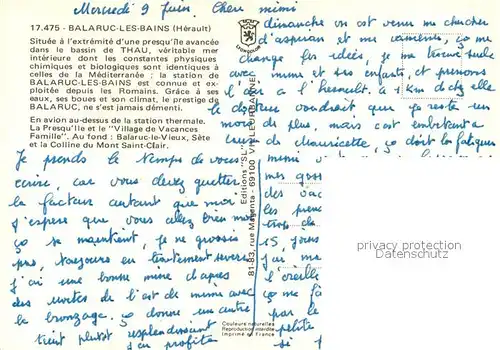 Mercredi 9 Juin. Cher mimi
17.475 - BALARUC-LES-BAINS (Hérault)
Située à l'extrémité d'une presqu'île avancée
dans le bassin de THAU, véritable mer
intérieure dont les constantes physiques
chimiques et biologiques sont identiques à
celles de la Méditerranée ; la station de
BALARUC-LES-BAINS est connue et ex-
ploitée depuis les Romains. Grâce à ses
eaux, ses boues et son climat, le prestige de
BALARUC, ne s'est jamais démenti.
En avion au-dessus de la station thermale.
La Presqu'île et le "Village de Vacances
Famille". Au fond : Balaruc-le-Vieux, Sète
et la Colline du Mont Saint-Clair.
Je prends le temps de vous
écrire, car vous devez guetter
le facteur autant que moi
J'espère que vous allez bien moi
ça se maintient, je ne grossis
pas, toujours en traitement sévère
j'ai une bonne mine d'après
de mimi avec
le bronzage. ça donne un autre
teint plutôt resplendissant
j'ai profité
Editions "SL"
81-83, rue Magenta - 69100 VILLEURBANNE
Couleurs naturelles
Reproduction interdite
Imprimé en France
dimanche on est venu me chercher
d'aspiran et me ça me
change les idées, je me
avec mimi et ses enfants, et
à l'Hérault. à 1 km de elle
le docteur voudrait que ça reste un
mois de plus, mais
de Mauricette, ça doit la fatiguer
mimi
mes
des vac
les
trop de
15, jours
j'ai me
l'oreille
ça me fa
par le
petite
si
privacy protection